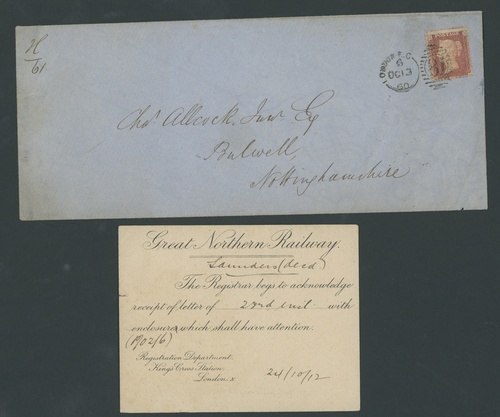 H
/61
LONDON E.C
6
OC 13
60
Thos Allcock Junr Esq
Bulwell,
Nottinghamshire
Great Northern Railway.
Saunders (decd)
The Registrar begs to acknowledge
receipt of letter of 22nd inst with
enclosure, which shall have attention.
(1902/6)
Registration Department.
Kings Cross Station.
London. N.
24/10/12